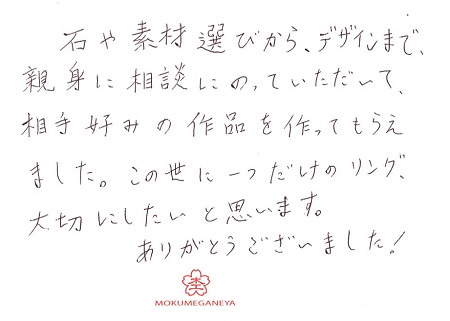 石や素材選びから、デザインまで、
親身に相談にのっていただいて、
相手好みの作品を作ってもらえ
ました。この世に一つだけのリング、
大切にしたいと思います。
ありがとうございました!
MOKUMEGANEYA